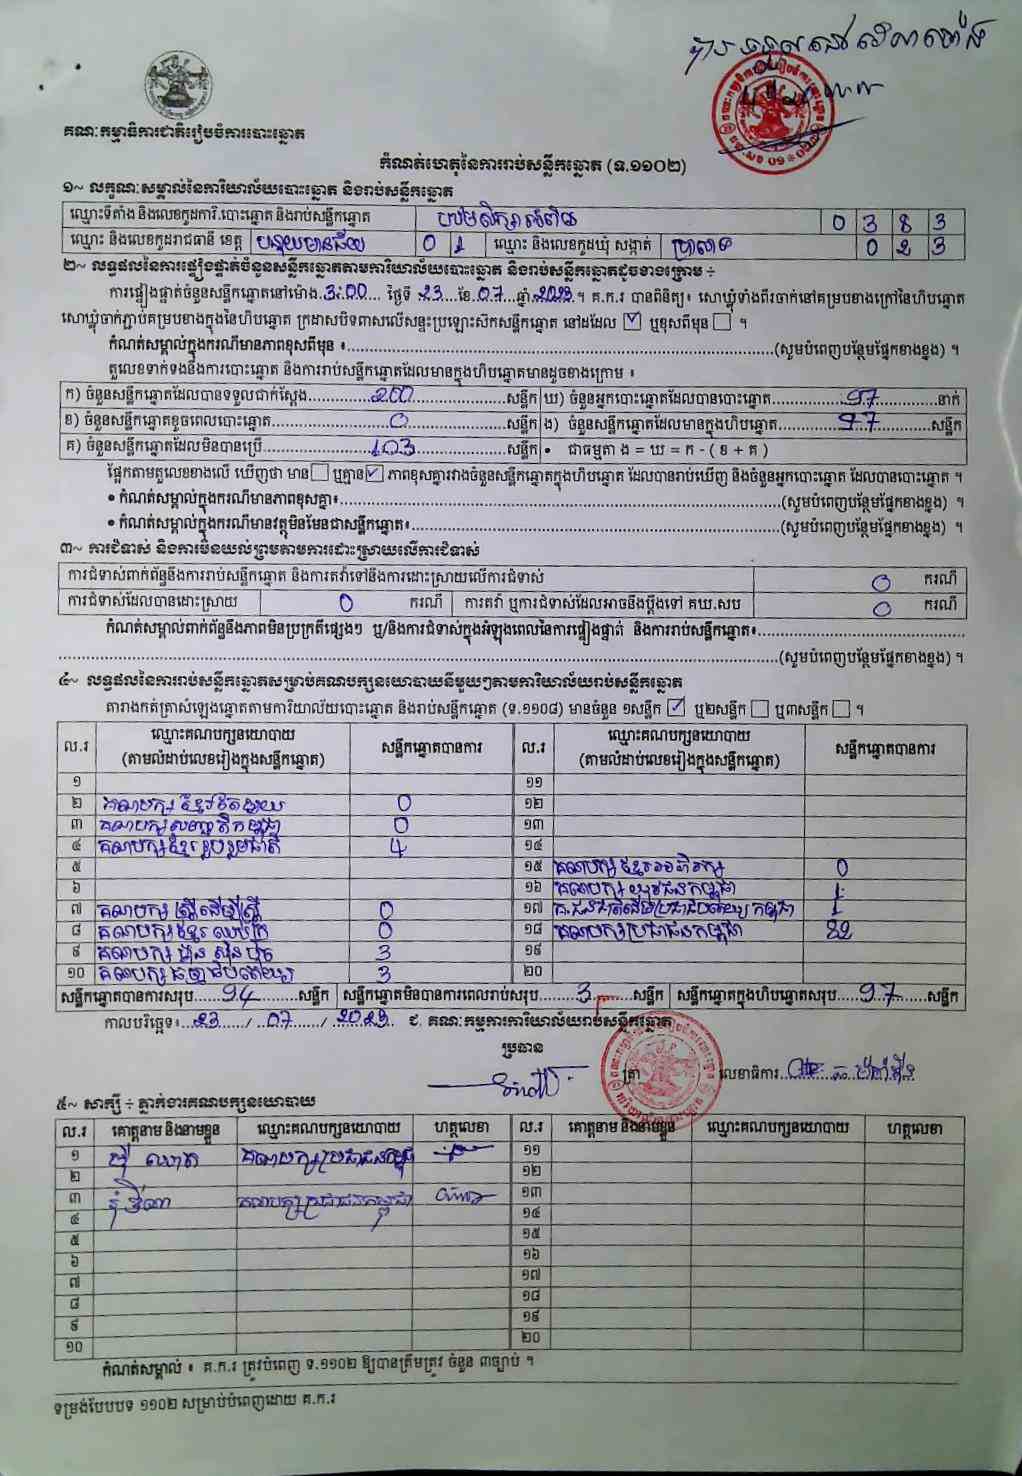 គណៈកម្មាធិការជាតិរៀបចំការបោះឆ្នោត
កំណត់ហេតុនៃការរាប់សន្លឹកឆ្នោត (ទ.១១០២)
១~ លក្ខណៈសម្គាល់នៃការិយាល័យបោះឆ្នោត និងរាប់សន្លឹកឆ្នោត
ឈ្មោះទីតាំង និងលេខកូដការិ.បោះឆ្នោត និងរាប់សន្លឹកឆ្នោត 0 3 8 3
ឈ្មោះ និងលេខកូដរាជធានី ខេត្ត បន្ទាយមានជ័យ 0 1 ឈ្មោះ និងលេខកូដឃុំ សង្កាត់ ប្រាសាទ 0 2 3
២~ លទ្ធផលនៃការផ្ទៀងផ្ទាត់ចំនួនសន្លឹកឆ្នោតតាមការិយាល័យបោះឆ្នោត និងរាប់សន្លឹកឆ្នោតដូចខាងក្រោម ÷
ការផ្ទៀងផ្ទាត់ចំនួនសន្លឹកឆ្នោតនៅម៉ោង 3:00 ថ្ងៃទី 23 ខែ 07 ឆ្នាំ 2023 ។ គ.ក.រ បានពិនិត្យ៖ សោឃ្លុំទាំងពីរចាក់នៅគម្របខាងក្រៅនៃហិបឆ្នោត
សោឃ្លុំចាក់ភ្ជាប់គម្របខាងក្នុងនៃហិបឆ្នោត ក្រដាសបិទពាសលើសន្ទះប្រឡោះស៊កសន្លឹកឆ្នោត នៅដដែល ☑ ឬខុសពីមុន ☐ ។
កំណត់សម្គាល់ក្នុងករណីមានភាពខុសពីមុន ៖ (សូមបំពេញបន្ថែមផ្នែកខាងខ្នង) ។
តួលេខទាក់ទងនឹងការបោះឆ្នោត និងការរាប់សន្លឹកឆ្នោតដែលមានក្នុងហិបឆ្នោតមានដូចខាងក្រោម ៖
ក) ចំនួនសន្លឹកឆ្នោតដែលបានទទួលជាក់ស្តែង 200 សន្លឹក ឃ) ចំនួនអ្នកបោះឆ្នោតដែលបានបោះឆ្នោត 97 នាក់
ខ) ចំនួនសន្លឹកឆ្នោតខូចពេលបោះឆ្នោត 0 សន្លឹក ង) ចំនួនសន្លឹកឆ្នោតដែលមានក្នុងហិបឆ្នោត 97 សន្លឹក
គ) ចំនួនសន្លឹកឆ្នោតដែលមិនបានប្រើ 103 សន្លឹក • ជាធម្មតា ង = ឃ = ក - ( ខ + គ )
ផ្អែកតាមតួលេខខាងលើ ឃើញថា មាន ☐ ឬគ្មាន ☑ ភាពខុសគ្នារវាងចំនួនសន្លឹកឆ្នោតក្នុងហិបឆ្នោត ដែលបានរាប់ឃើញ និងចំនួនអ្នកបោះឆ្នោត ដែលបានបោះឆ្នោត ។
• កំណត់សម្គាល់ក្នុងករណីមានភាពខុសគ្នា៖ (សូមបំពេញបន្ថែមផ្នែកខាងខ្នង) ។
• កំណត់សម្គាល់ក្នុងករណីមានវត្ថុមិនមែនជាសន្លឹកឆ្នោត៖ (សូមបំពេញបន្ថែមផ្នែកខាងខ្នង) ។
៣~ ការជំទាស់ និងការមិនយល់ព្រមតាមការដោះស្រាយលើការជំទាស់
ការជំទាស់ពាក់ព័ន្ធនឹងការរាប់សន្លឹកឆ្នោត និងការតវ៉ាទៅនឹងការដោះស្រាយលើការជំទាស់ 0 ករណី
ការជំទាស់ដែលបានដោះស្រាយ 0 ករណី ការតវ៉ា ឬការជំទាស់ដែលអាចនឹងប្តឹងទៅ គឃ.សប 0 ករណី
កំណត់សម្គាល់ពាក់ព័ន្ធនឹងភាពមិនប្រក្រតីផ្សេងៗ ឬ/និងការជំទាស់ក្នុងអំឡុងពេលនៃការផ្ទៀងផ្ទាត់ និងការរាប់សន្លឹកឆ្នោត៖
(សូមបំពេញបន្ថែមផ្នែកខាងខ្នង) ។
៤~ លទ្ធផលនៃការរាប់សន្លឹកឆ្នោតសម្រាប់គណបក្សនយោបាយនីមួយៗតាមការិយាល័យរាប់សន្លឹកឆ្នោត
តារាងកត់ត្រាសំឡេងឆ្នោតតាមការិយាល័យបោះឆ្នោត និងរាប់សន្លឹកឆ្នោត (ទ.១១០៨) មានចំនួន ១សន្លឹក ☑ ឬ២សន្លឹក ☐ ឬ៣សន្លឹក ☐ ។
ល.រ ឈ្មោះគណបក្សនយោបាយ (តាមលំដាប់លេខរៀងក្នុងសន្លឹកឆ្នោត) សន្លឹកឆ្នោតបានការ ល.រ ឈ្មោះគណបក្សនយោបាយ (តាមលំដាប់លេខរៀងក្នុងសន្លឹកឆ្នោត) សន្លឹកឆ្នោតបានការ
១ ១១
២ គណបក្សខ្មែរតែមួយ 0 ១២
៣ គណបក្សសញ្ជាតិកម្ពុជា 0 ១៣
៤ គណបក្សខ្មែររួបរួមជាតិ 4 ១៤
៥ ១៥ គណបក្ស 0
៦ ១៦ គណបក្សយុវជនកម្ពុជា 1
៧ គណបក្សស្ត្រីដើម្បីស្ត្រី 0 ១៧ 1
៨ គណបក្សខ្មែរឈប់ក្រ 0 ១៨ គណបក្សប្រជាជនកម្ពុជា 82
៩ គណបក្សហ្វ៊ុនស៊ិនប៉ិច 3 ១៩
១០ គណបក្សធម្មាធិបតេយ្យ 3 ២០
សន្លឹកឆ្នោតបានការសរុប 94 សន្លឹក សន្លឹកឆ្នោតមិនបានការពេលរាប់សរុប 3 សន្លឹក សន្លឹកឆ្នោតក្នុងហិបឆ្នោតសរុប 97 សន្លឹក
កាលបរិច្ឆេទ៖ 23 / 07 / 2023 ជ. គណៈកម្មការការិយាល័យរាប់សន្លឹកឆ្នោត
ប្រធាន
ត្រា លេខាធិការ
៥~ សាក្សី ÷ ភ្នាក់ងារគណបក្សនយោបាយ
ល.រ គោត្តនាម និងនាមខ្លួន ឈ្មោះគណបក្សនយោបាយ ហត្ថលេខា ល.រ គោត្តនាម និងនាមខ្លួន ឈ្មោះគណបក្សនយោបាយ ហត្ថលេខា
១ គណបក្សប្រជាជនកម្ពុជា ១១
២ ១២
៣ គណបក្សប្រជាជនកម្ពុជា ១៣
៤ ១៤
៥ ១៥
៦ ១៦
៧ ១៧
៨ ១៨
៩ ១៩
១០ ២០
កំណត់សម្គាល់ ៖ គ.ក.រ ត្រូវបំពេញ ទ.១១០២ ឱ្យបានត្រឹមត្រូវ ចំនួន ៣ច្បាប់ ។
ទម្រង់បែបបទ ១១០២ សម្រាប់បំពេញដោយ គ.ក.រ